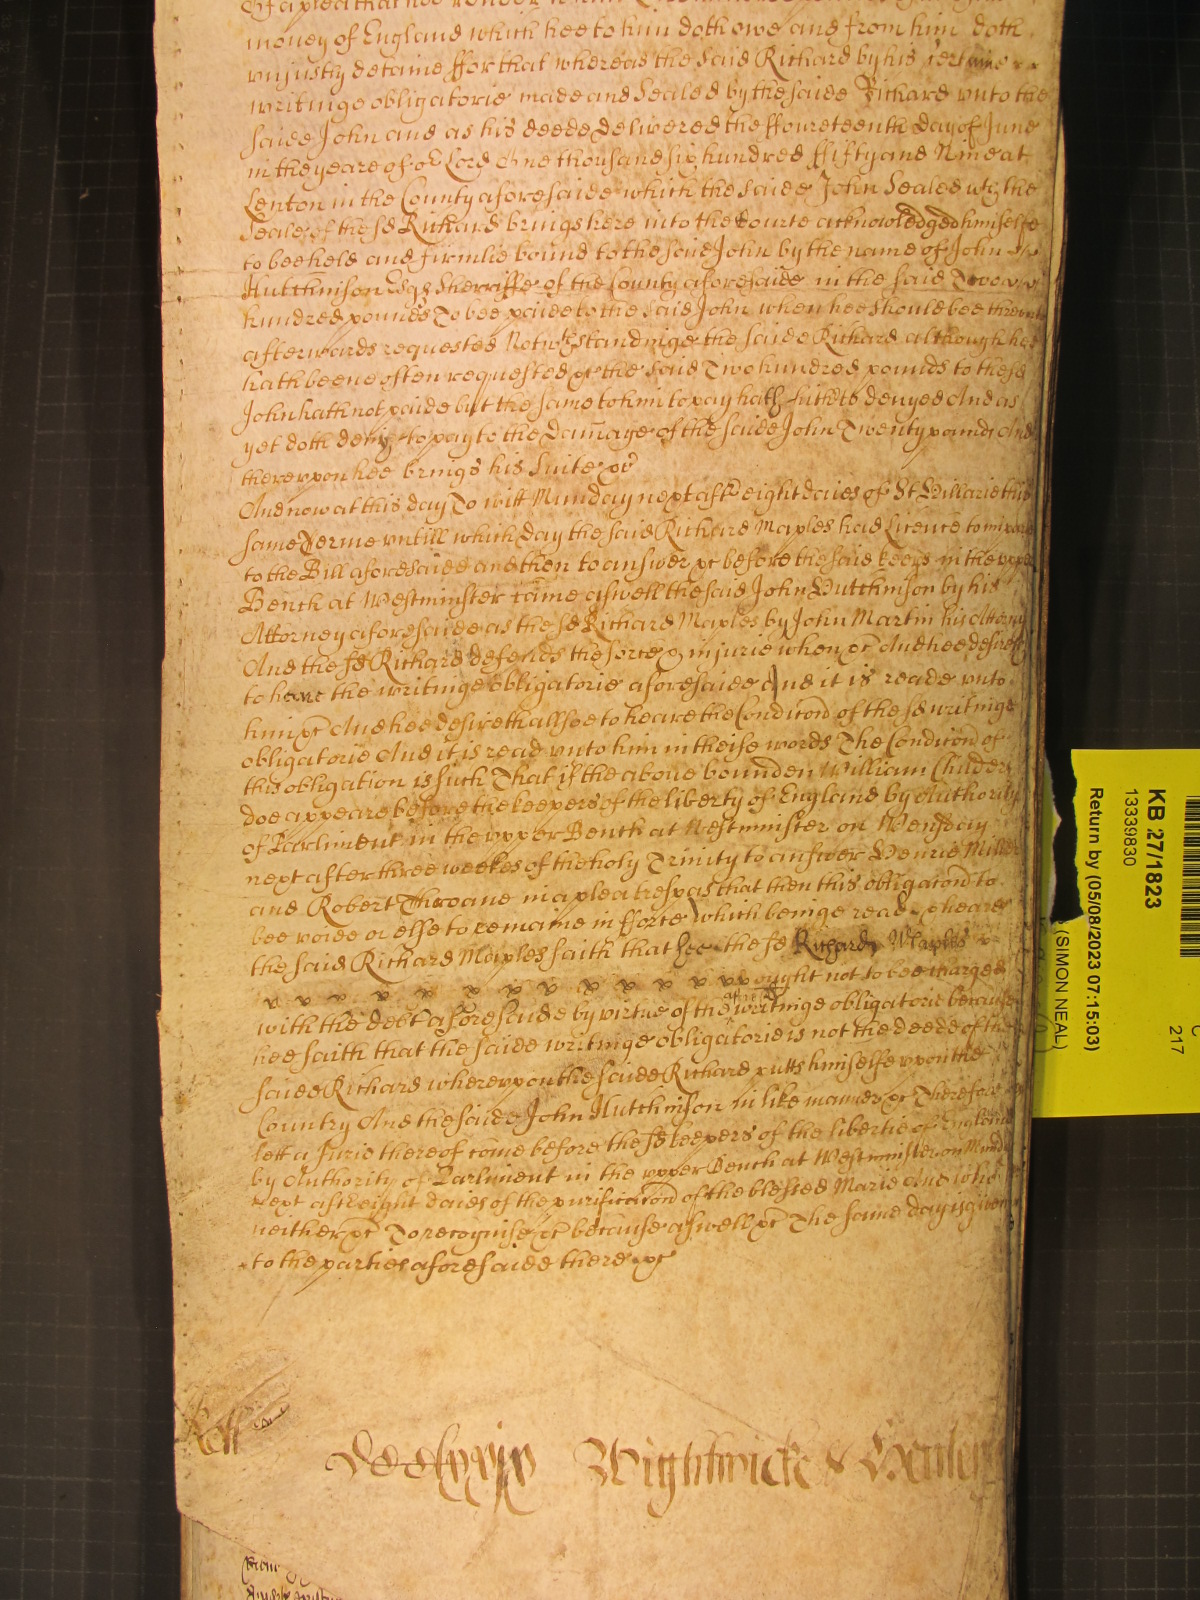 Of a plea that hee render to him
money of England which hee to him doth owe and from him doth
uniustly detaine ffor that whereas the said Richard by his certaine
writinge obligatorie made and Sealed by the saide Richard unto the
saide John and as his deede delivered the ffourteenth day of June
in the yeare of or Lord One thousand six hundred ffifty and Nine at
Lenton in the County aforesaide which the saide John Sealed wth the
Seale of the sd Richard brings here into the Courte acknowledged himselfe
to bee held and firmlie bound to the said John by the name of John
Hutchinson Esqr Sherriffe of the County aforesaide in the said Twoe
hundred pounds To bee paide to the said John when hee should bee thereunto
afterwards requested Notwthstandinge the saide Richard although hee
hath beene often requested &c the said Two hundred pounds to the sd
John hath not paide but the same to him to pay hath hitherto denyed And as
yet doth deny to pay to the damage of the saide John Twenty pounds And
thereupon hee brings his Suite &c
And now at this day To witt Munday next aftr eight daies of St Hillarie this
same Terme untill which day the said Richard Maples had Licence to imparle
to the Bill aforesaide and then to answer &c before the said keeprs in the upper
Bench at Westminster came aswell the said John Hutchinson by his
Attorney aforesaide as the sd Richard Maples by John Martin his Attorny
And the sd Richard defends the force & iniurie when &c And hee desireth
to heare the writinge obligatorie aforesaide And it is reade unto
him &c And hee desireth allsoe to heare the Condicon of the sd writinge
obligatorie And it is read unto him in theise words The Condicon of
this obligation is such That if the above bounden William Childers
doe appeare before the keepers of the liberty of England by Authority
of Parliment in the upper Bench at Westminster on Wensday
next after three weekes of the holy Trinity to answer Henrie Miller
and Robert Throane in a plea trespas that then this obligacon to
bee voide or else to remaine in fforce which beinge read & heard
the said Richard Maples saith that hee the sd Richard Maples
ought not to bee charged
with the debt aforesaide by virtue of the aforesd writinge obligatorie because
hee saith that the saide writinge obligatorie is not the deede of the
saide Richard whereupon the saide Richard putts himselfe upon the
Country And the saide John Hutchinson in like manner &c Therefore
lett a Jurie thereof come before the sd keepers of the libertie of England
by Authority of Parliment in the upper Bench at Westminster on Munday
next aftr eight daies of the purificacon of the blessed Marie And who
neither &c To recognise &c because aswell &c The same day is given
to the parties aforesaide there &c
Wightwicke &
KB 27/1823
13339830
Return by (05/08/2023 07:15:03)
(SIMON NEAL)
217